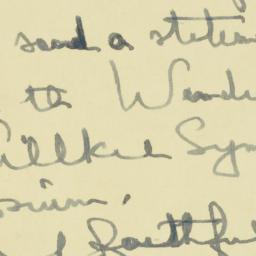 send a statem
the Wende
Willkie Sym
osium,
faithful